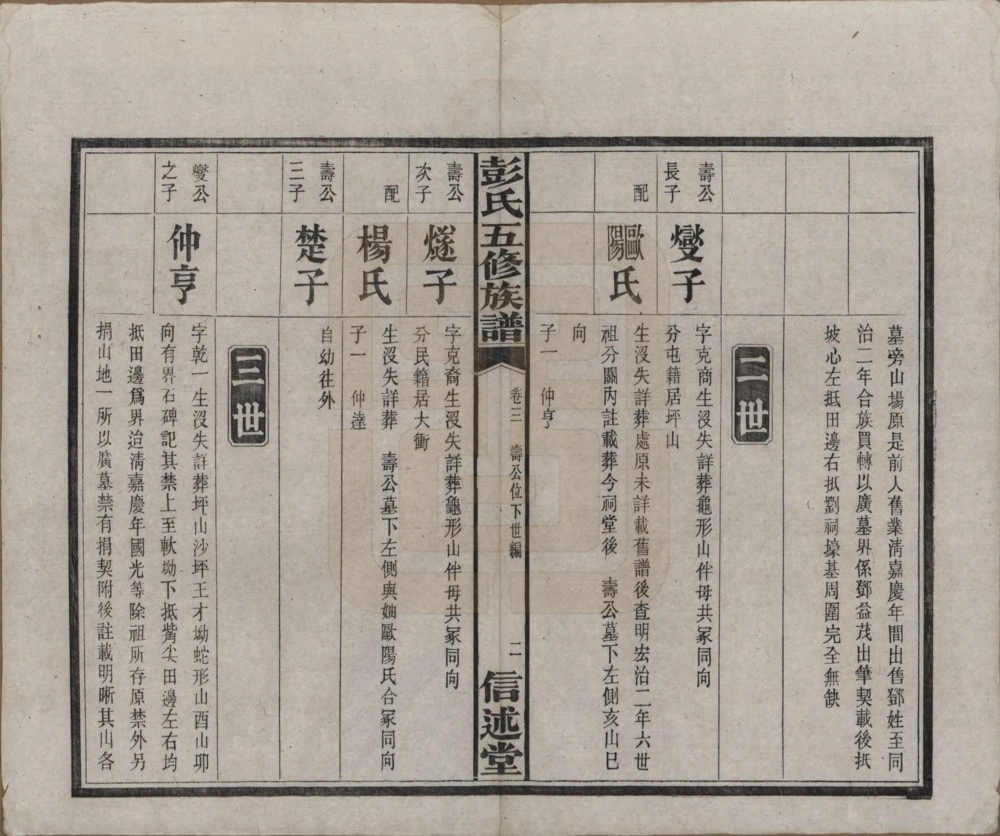 墓旁山場原是前人舊業淸嘉慶年間出售鄧姓至同
治二年合族買轉以廣墓界係鄧益茂出筆契載後抵
坡心左抵田邊右抵劉祠壕基周圍完全無缺
二世
壽公長子
燮子
字克商生沒失詳葬龜形山伴母共冢同向
分屯籍居坪山
配
歐陽氏
生沒失詳葬處原未詳載舊譜後查明宏治二年六世
祖分關內註載葬今祠堂後 壽公墓下左側亥山巳
向
子一 仲亨
彭氏五修族譜
卷三 壽公位下世編
二
信述堂
壽公次子
燧子
字克裔生沒失詳葬龜形山伴母共冢同向
分民籍居大衝
配
楊氏
生沒失詳葬 壽公墓下左側與妯歐陽氏合冢同向
子一 仲達
壽公三子
楚子
自幼往外
三世
燮公之子
仲亨
字乾一生沒失詳葬坪山沙坪王才坳蛇形山酉山卯
向有界石碑記其禁上至軟坳下抵觜尖田邊左右均
抵田邊爲界迨淸嘉慶年國光等除祖所存原禁外另
捐山地一所以廣墓禁有捐契附後註載明晰其山各